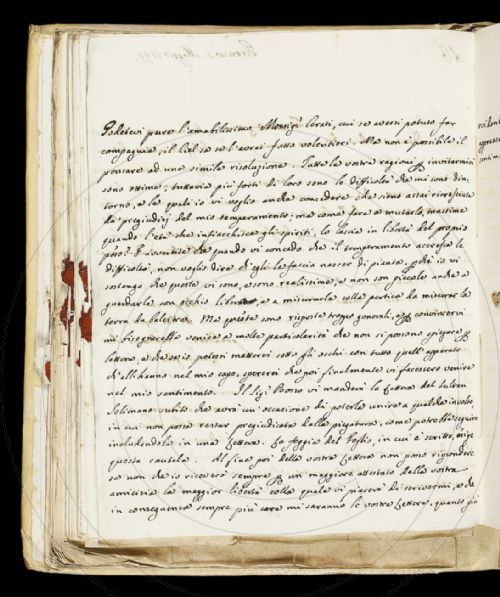 Godetevi pure l'amabilissimo Monsig.r Cerati, cui se avessi potuto far
compagnia, il Ciel sa se l'avrei fatto volentieri. Ma non è possibile il
pensare ad una simile risoluzione. Tutte le vostre ragioni p invitarmici
sono ottime; tuttavia più forti di loro sono le difficoltà che mi sono din-
torno, e le quali io vi voglio anche concedere che sieno assai ricresciute
da' pregiudizj del mio temperamento; ma come fare a mutarlo, massime
quando l'età che infiacchisce gli spiriti, lo lascia in libertà del proprio
peso? E avvertite che quando vi concedo che il temperamento accresce le
difficoltà, non voglio dire ch'egli le faccia nascer di pianta, pchè io vi
sostengo che queste vi sono, e sono realissime, e non son piccole anche a
guardarle con occhio libero, e a misurarle colla pertica da misurar la
terra da balestra. Ma queste sono risposte troppo generali, e p convincervi
mi bisognerebbe venire a molte particolarità che non si possono spiegare p
lettere, e che se io potessi mettervi sotto gli occhi con tutto quell'apparato
ch'elle hanno nel mio capo, spererei che poi finalmente vi facessero venire
nel mio sentimento. Il Sig.r Pozzo vi manderà la lettera del Sultan
Solimano subito che avrà un'occasione di poterla unire a qualche involto,
in cui non possa restar pregiudicata dalla piegatura, come potrebbe seguire
includendola in una lettera. La foggia del foglio, in cui è scritta, esige
questa cautela. Al fine poi della vostra lettera non posso rispondere
se non che io riceverò sempre p un maggiore attestato della vostra
amicizia la maggior libertà colla quale vi piacerà di scrivermi, e che
in conseguenza sempre più care mi saranno le vostre lettere, quanto più